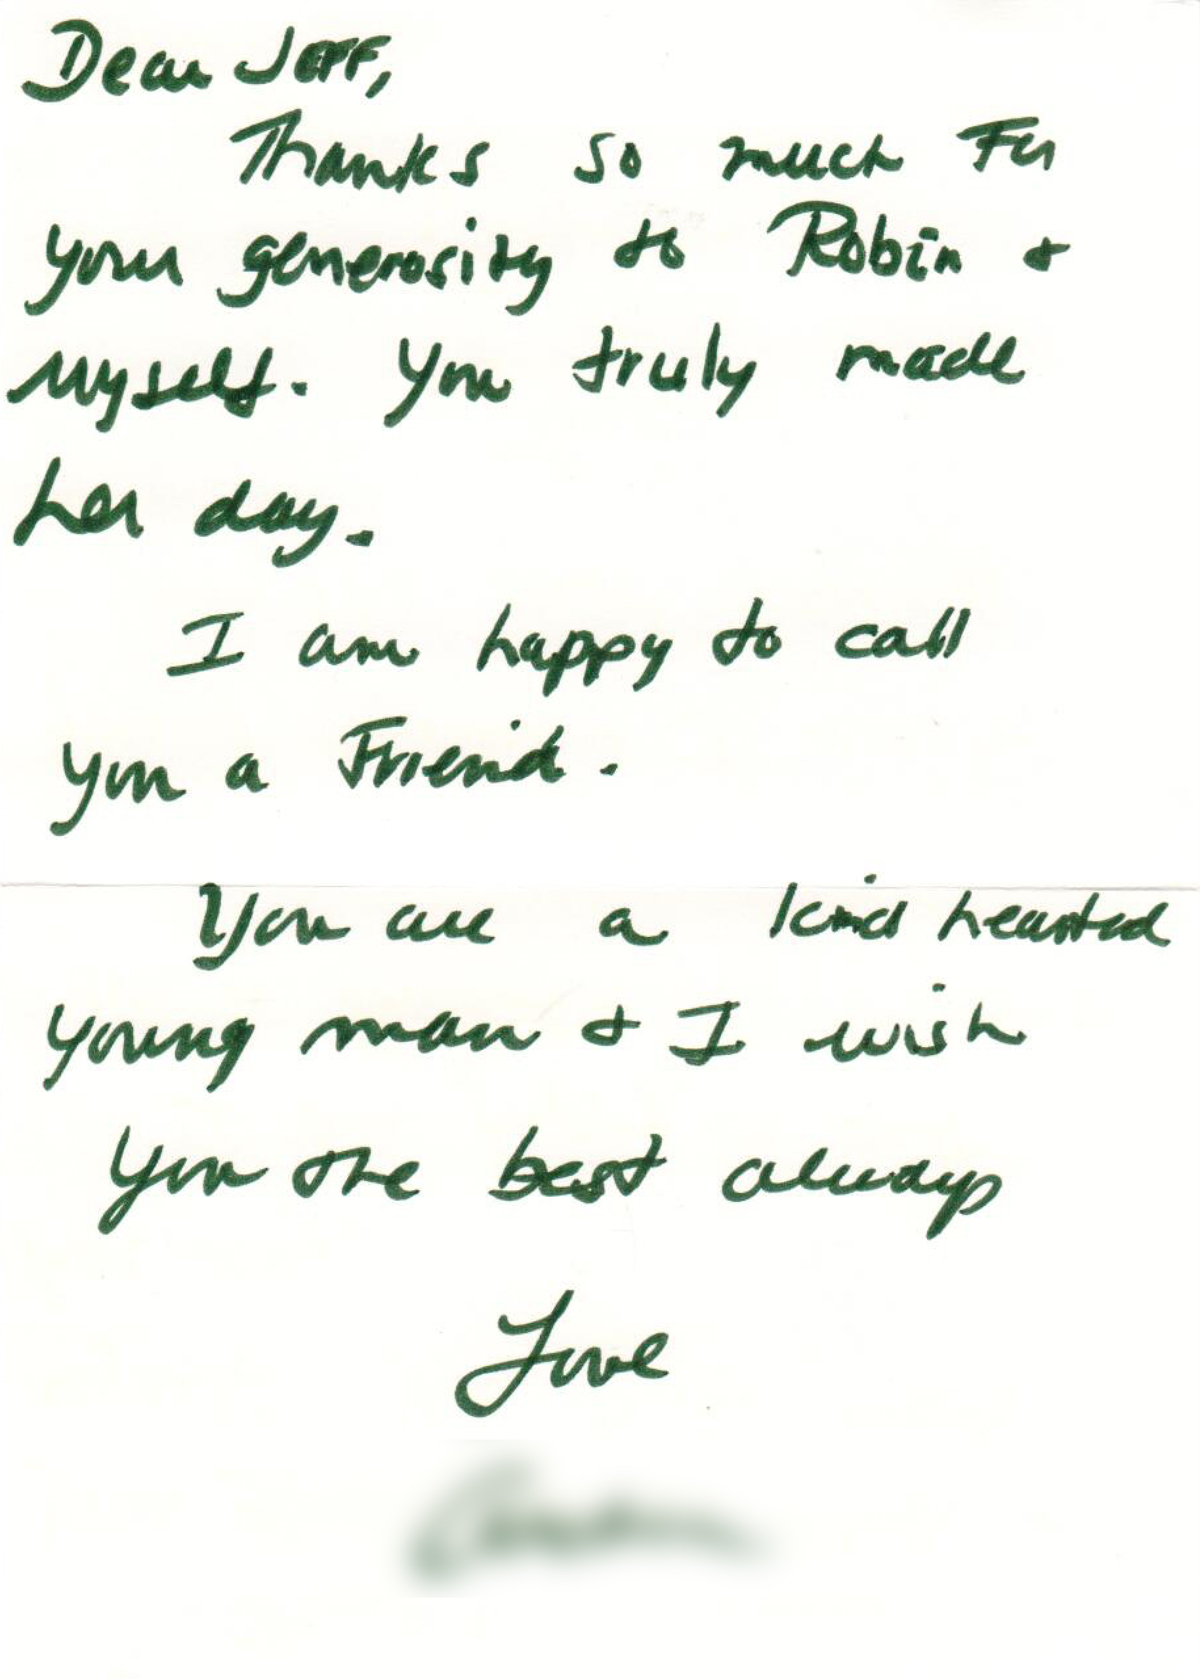 Dear Jeff,
Thanks so much For
your generosity to Robin +
Myself. You truly made
her day.
I am happy to call
you a Friend.
You are a kind hearted
young man + I wish
you the best always
Love